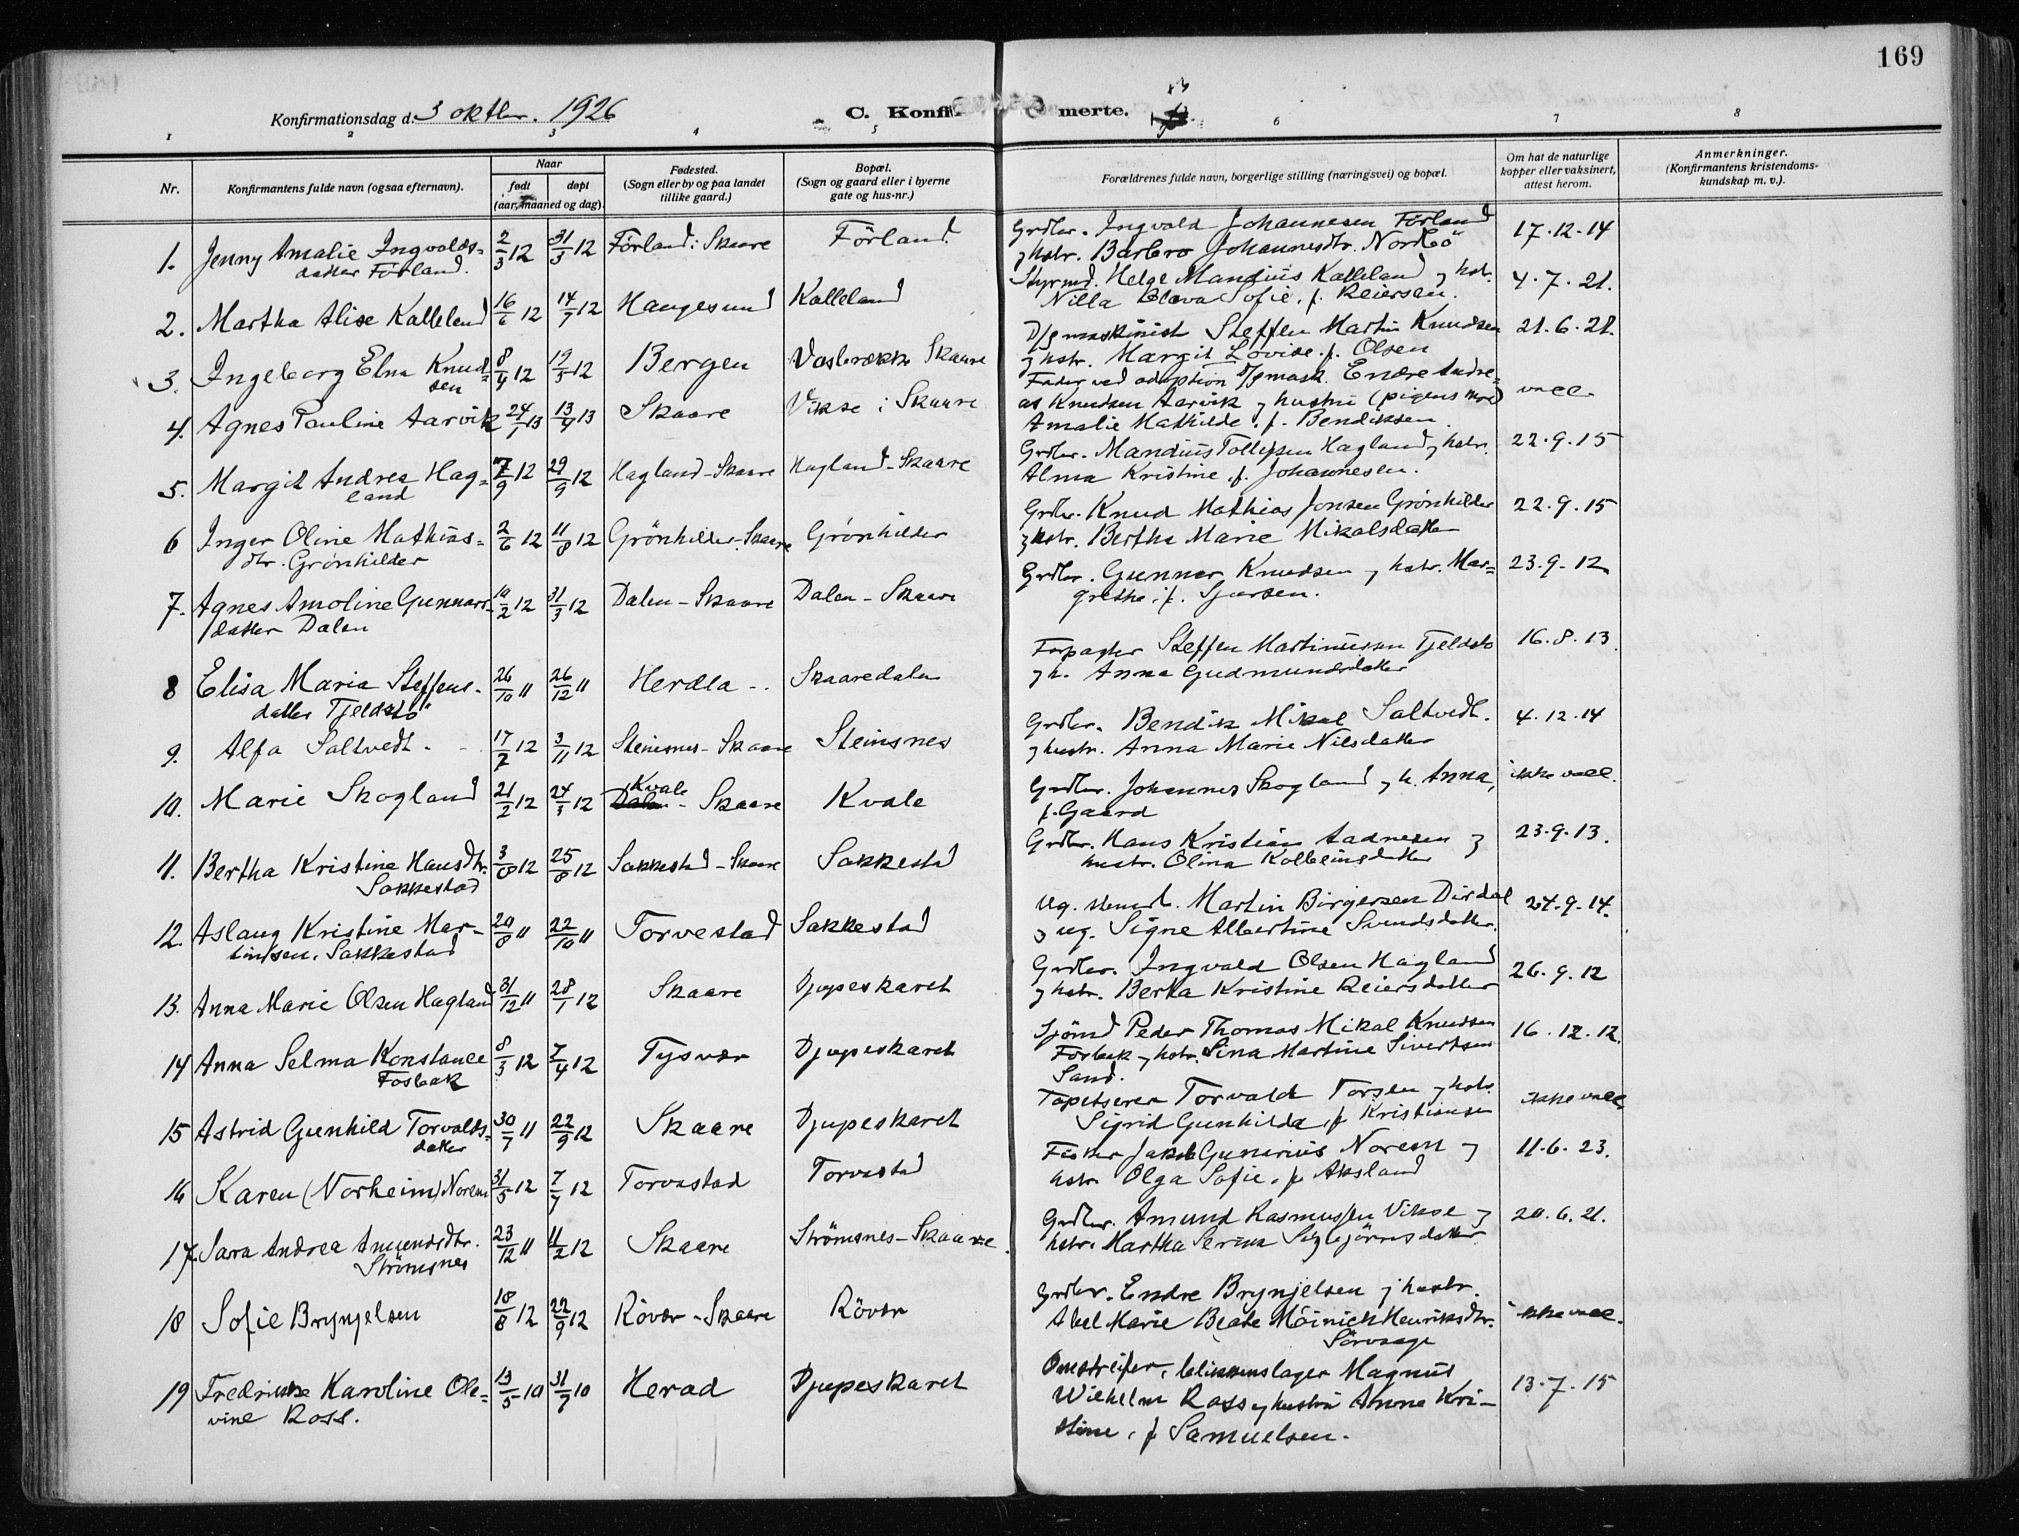 169
Konfirmationsdag d. 3 oktbr. 1926
C. Konfirmerte.
1 2 3 4 5 6 7 8
Nr.
Konfirmantens fulde navn (ogsaa efternavn).
Naar
født
døpt
(aar, maaned og dag).
Fødested.
(Sogn eller by og paa landet
tillike gaard.)
Bopæl.
(Sogn og gaard eller i byerne
gate og hus-nr.)
Forældrenes fulde navn, borgerlige stilling (næringsvei) og bopæl.
Om hat de naturlige
kopper eller vaksinert,
attest herom.
Anmerkninger.
(Konfirmantens kristendoms-
kundskap m. v.).
1. Jenny Amalie Ingvalds- 2/3 12 31/3 12 Förland i Skaare Förland Grdbr. Ingvald Johannesen Förland 17.12.14
datter Förland. og hstr. Barbro Johannesdtr. Nordbö
2. Martha Alise Kalleland 16/6 12 14/7 12 Haugesund Kalleland Styrmd. Helge Mandius Kalleland og hstr. 4.7.21.
Nilla Sofie, f. Reiersen.
3. Ingeborg Elna Knud- 8/4 12 Bergen Skaare D/s maskinist Steffen Martin Knudsen 21.6.21.
sen og hstr. Margit Lovise f. Olsen
4. Agnes Pauline Aarvik 24/1 13 13/4 13 Skaare Vikse i Skaare Fader ved adoption D/s mask. Endre Andre- vacc.
as Knudsen Aarvik og hustru (pigens mor)
Amalie Mathilde, f. Bendiksen.
5. Margit Andrea Hag- 7/9 12 29/9 12 Hagland - Skaare Hagland - Skaare Grdbr. Mandius Tollefsen Hagland og hstr. 22.9.15
land Alma Kristine, f. Johannesen.
6 Inger Oline Mathias- 2/6 12 11/8 12 Grönhilder - Skaare Grönhilder Grdbr. Knud Mathias Jonsen Grönhilder 22.9.15
dtr. Grönhilder og hstr. Bertha Marie Mikalsdatter
7. Agnes Amoline Gunnars- 10/2 12 31/3 12 Dalen - Skaare Dalen - Skaare Grdbr. Gunnar Knudsen og hstr. Mar- 23.9.12.
datter Dalen grethe, f. Sjursen.
8 Elisa Maria Steffens- 26/10 11 26/12 11 Herdla -.. Skaaredalen Forpagter Steffen Martinussen Tjeldstö 16.8.13.
datter Tjeldstö og h. Anna Gudmundsdatter
9. Alfa Saltvedt. 17/7 12 3/11 12 Steinsnes - Skaare Steinsnes Grdbr. Bendik Mikal Saltvedt. 4.12.14
og hustr. Anna Marie Nilsdatter
10. Marie Skogland 21/2 12 24/3 12 Kvale - Skaare Kvale Grdbr. Johannes Skogland og h. Anna, ikke vacc.
f. Gaard
11. Bertha Kristine Hansdtr. 3/8 12 25/8 12 Sakkestad - Skaare Sakkestad Grdbr. Hans Kristian Aadnesen og 23.9.13.
Sakkestad hustr. Olina Kolbeinsdatter
12. Aslaug Kristine Mar- 20/8 11 22/10 11 Torvestad Sakkestad Ug. Martin Birgersen Dirdal 24.9.14.
tinsen. Sakkestad og ug. Signe Albertine Svendsdatter.
13. Anna Marie Olsen Hagland 31/12 11 28/1 12 Skaare Djupeskaret Grdbr. Ingvald Olsen Hagland 26.9.12
og hstr. Berta Kristine Reiersdatter
14 Anna Selma Konstance 8/3 12 7/4 12 Tysvær Djupeskaret Sjömd Peder Thomas Mikal Knudsen 16.12.12.
Fosbak Fosbak og hstr. Sina Martine Sivertsen
Sand.
15 Astrid Gunhild Torvalds- 30/7 11 22/9 12 Skaare Djupeskaret Tapetserer Torvald Torsen og hstr. ikke vacc.
datter Sigrid Gunhilda, f. Kristiansen
16 Karen (Norheim) Norem 31/5 12 7/7 12 Torvastad Torvastad Fisker Jakob Gunerius Norem og 11.6.23.
hstr. Olga Sofie, f. Aksland
17. Sara Andrea Amundsdtr. 23/12 11 11/2 12 Skaare Strömsnes - Skaare. Grdbr. Amund Rasmussen Vikse og 20.6.21.
Strömsnes hstr. Martha Serina datter
18 Sofie Brynjelsen 18/8 12 22/9 12 Rövær - Skaare Rövær Grdbr. Endre Brynjelsen og hustr. ikke vacc.
Abel Marie Beate Möinich Henriksdtr.
Sörvaage
19 Fredrikke Karoline Ole- 13/5 10 31/7 10 Herad Djupeskaret Omstreifer, blikkenslager Magnus 13.7.15
vine Ross. Wilhelm Ross og hustru Anne Kri-
stine, f. Samuelsen.